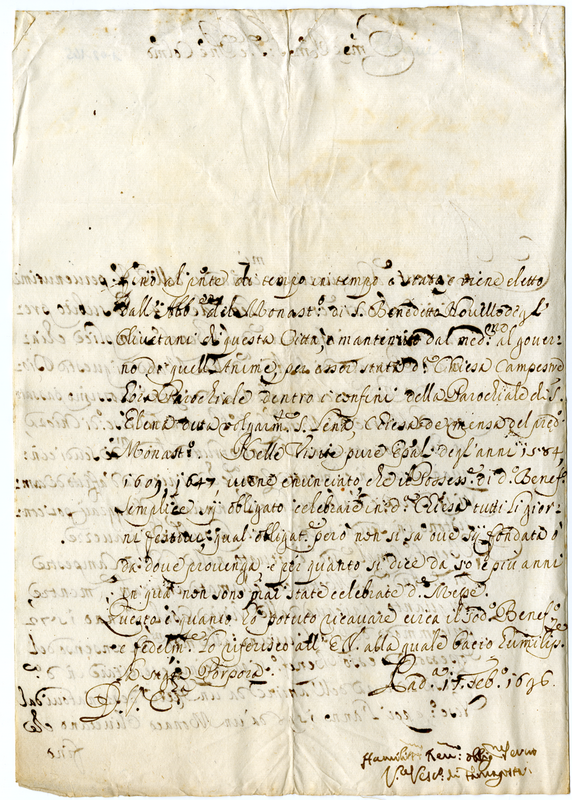 fino al pnte di tempo in tempo è stato e viene eletto
dall' Abb.e del Monast.o di S. Benedetto Novello degl'
Olivetani di questa Città, e mantenuto dal med.mo al gover-
no di quell'Anime, per esser stata d.a Chiesa Campestre
hora Parochiale dentro i confini della Parochiale di S.
Elena detta volgarm.te S. Lena, Chiesa de mensa del med.o
Monast.o Nelle Visite pure Epali degl'anni 1584,
1609, 1647 viene enunciato che il Possess.r di d.o Benef.o
semplice sij obligato celebrare in d.a Chiesa tutti li gior-
ni festivi, qual obligat.e però non si sa ove sij fondata ò
da dove provenga, e per quanto si dice da 50 e più anni
in quà non sono mai state celebrate d.e Messe.
Questo è quanto hò potuto ricavare circa il sod.o Benef.o
e fedelm.te lo riferisco all' E.V. alla quale bacio humiliss.e
la Sacra Porpora.
Pad.a 17. Feb.o 1696.
D. V. Em.za
Humiliss.o obblig.mo Servo